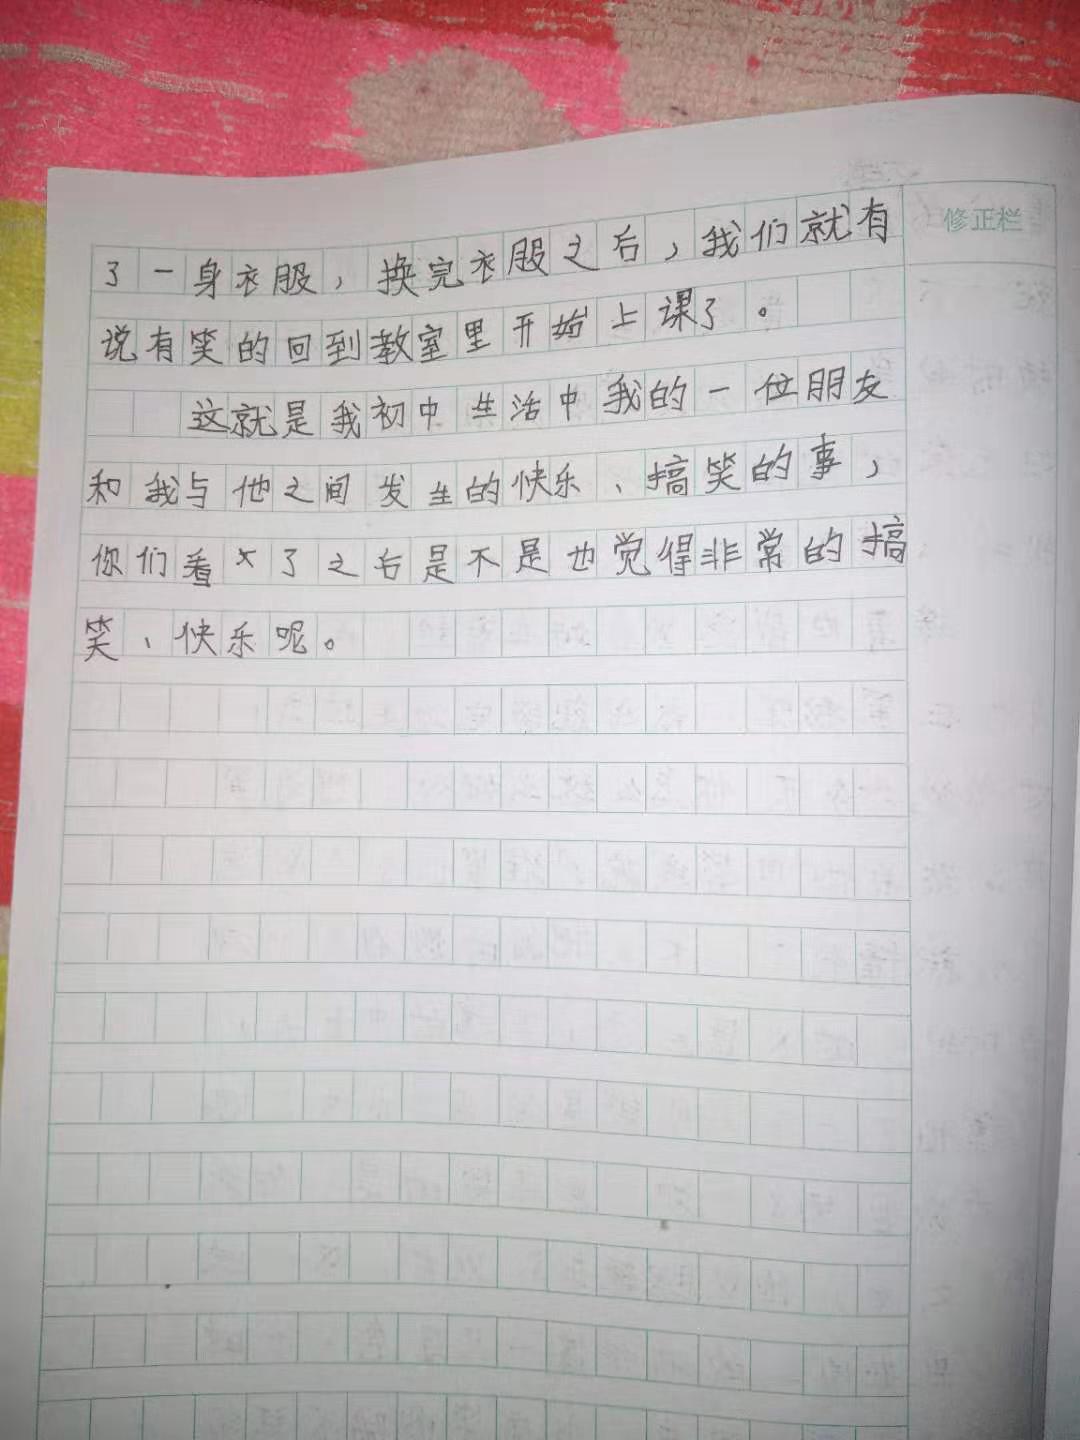 修正栏
了一身衣服，换完衣服之后，我们就有
说有笑的回到教室里开始上课了。
这就是我初中生活中我的一位朋友
和我与他之间发生的快乐、搞笑的事，
你们看了之后是不是也觉得非常的搞
笑、快乐呢。